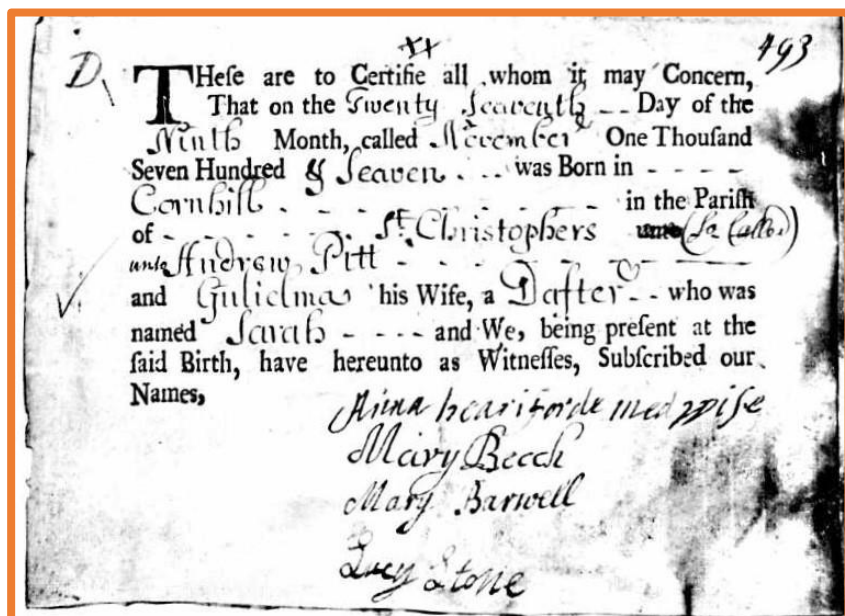 XX
493
D
THeſe are to Certifie all whom it may Concern,
That on the Twenty Seaventh -- Day of the
Ninth Month, called November One Thouſand
Seven Hundred & Seaven - - - was Born in - - - -
Cornhill - - - - - - - - - - in the Pariſh
of - - - - - St. Christophers unto (So Called)
unto Andrew Pitt - - - - - - - -
and Gulielma his Wife, a Dafter - - who was
named Sarah - - - - and We, being preſent at the
ſaid Birth, have hereunto as Witneſſes, Subſcribed our
Names,
Anna heariforde med wife
Mary Beech
Mary Barwell
Lucy Stone